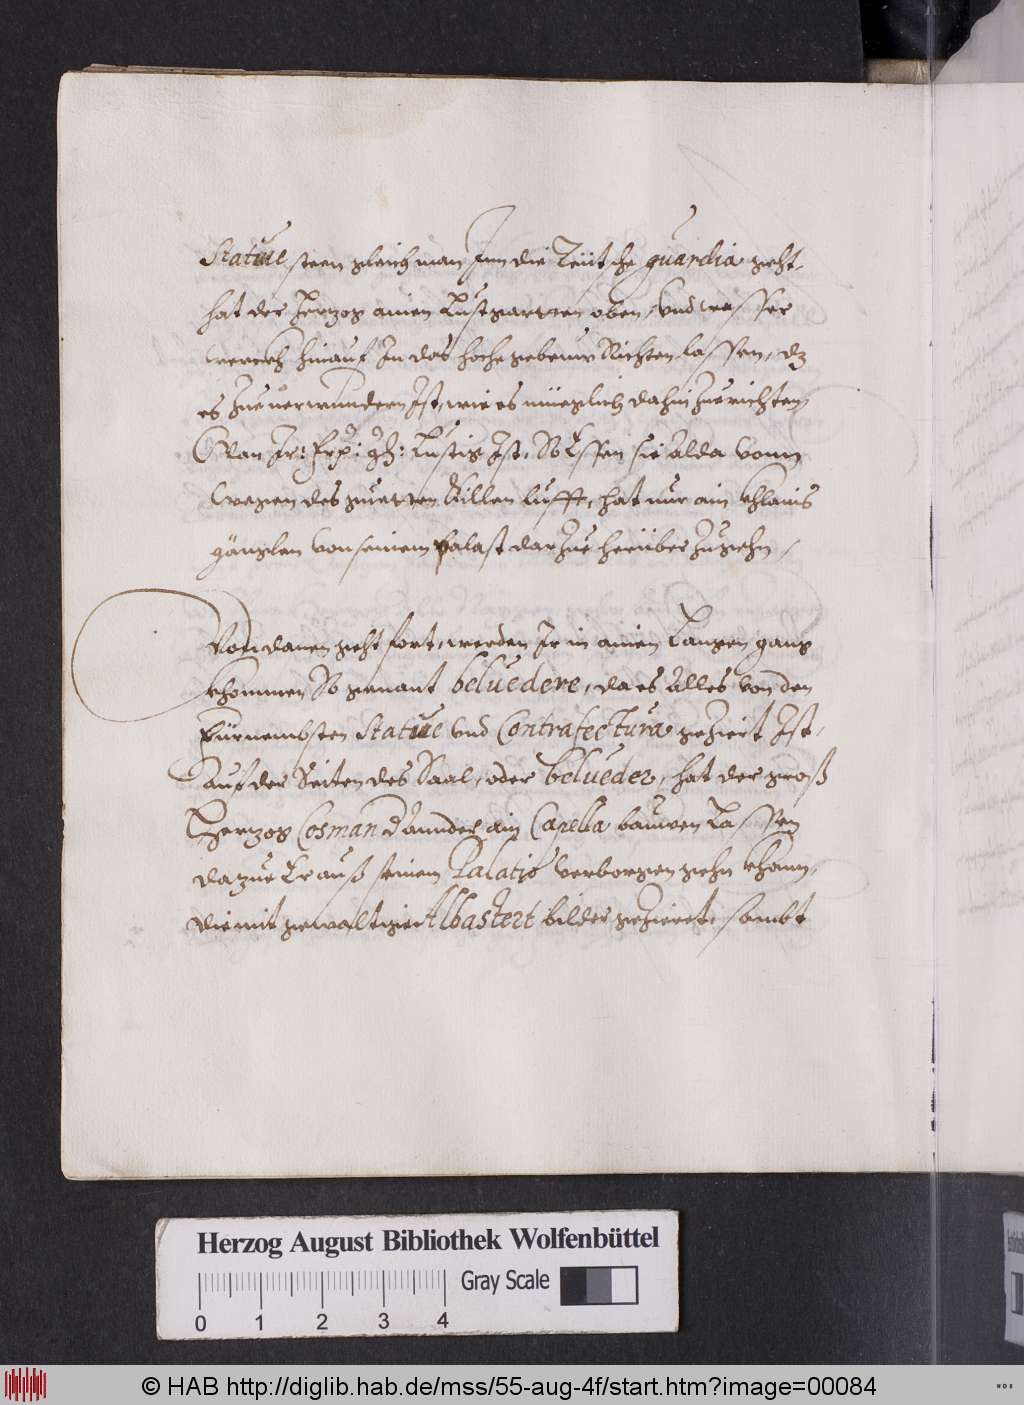 Statue steen gleich man Inn die Teütsche guardia geht,
hat der Hertzog ainen Lustgartten oben, vnd wasser
werckh hinauf In das hoche gebeuw Richten lassen, dz
es Zue verwundern Ist, wie es müeglich dahin Zue richten
Wan Ir: frg: gh: Lustig Ist, So Essen sie Alda vonn
wegen des guetten killen lufft, hat nur ain khlains
gänglen von seinem palast dar Zue herüber Zugehn /
Von danen geht fort, werden Ir in ainen Langen gang
khommen So genant beluedere, da es Alles von den
fürnembsten Statue vnd Contrafectura geZiert Ist,
Auf der Seiten des Saal, oder belueder, hat der groß
Hertzog Cosman ain Capella bauwen Lassen
da Zue Er auß seinem Palatio verborgen gehn khann,
die mit gewaltigen Albastert bilder geZieret, sambt
Herzog August Bibliothek Wolfenbüttel
Gray Scale
0 1 2 3 4
© HAB http://diglib.hab.de/mss/55-aug-4f/start.htm?image=00084